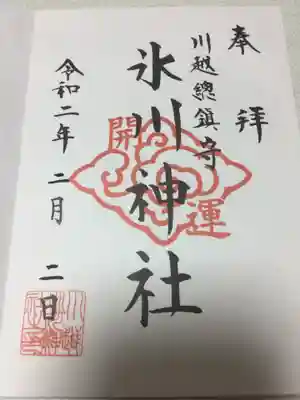 奉拝
川越總鎮守
氷川神社
開運
令和二年二月二日